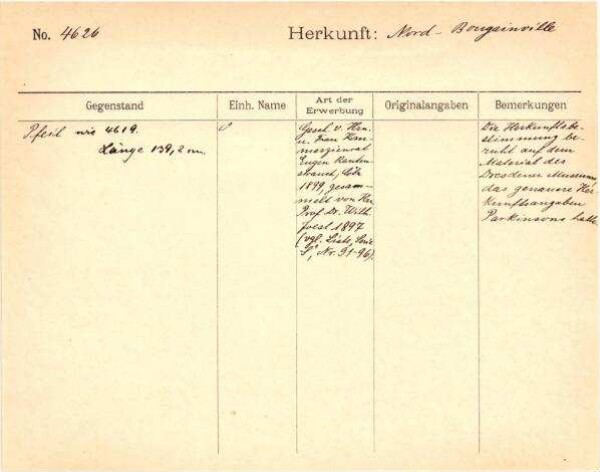 No. 4626 Herkunft: Nord-Bougainville
Gegenstand
Einh. Name
Art der
Erwerbung
Originalangaben
Bemerkungen
Pfeil wie 4619.
Länge 139,2 cm.
0
Gesch. v. Hrn.
u. Frau Kom-
merzienrat
Eugen Rauten-
strauch, Cöln
1899, gesam-
melt von Hrn.
Prof. Dr. Wilh.
Joest 1897
(vgl. Liste, Serie
S, Nr. 91-96).
Die Herkunftsbe-
stimmung be-
ruht auf dem
Material des
Dresdener Museums,
das genauere Her-
kunftsangaben
Parkinsons hatte.